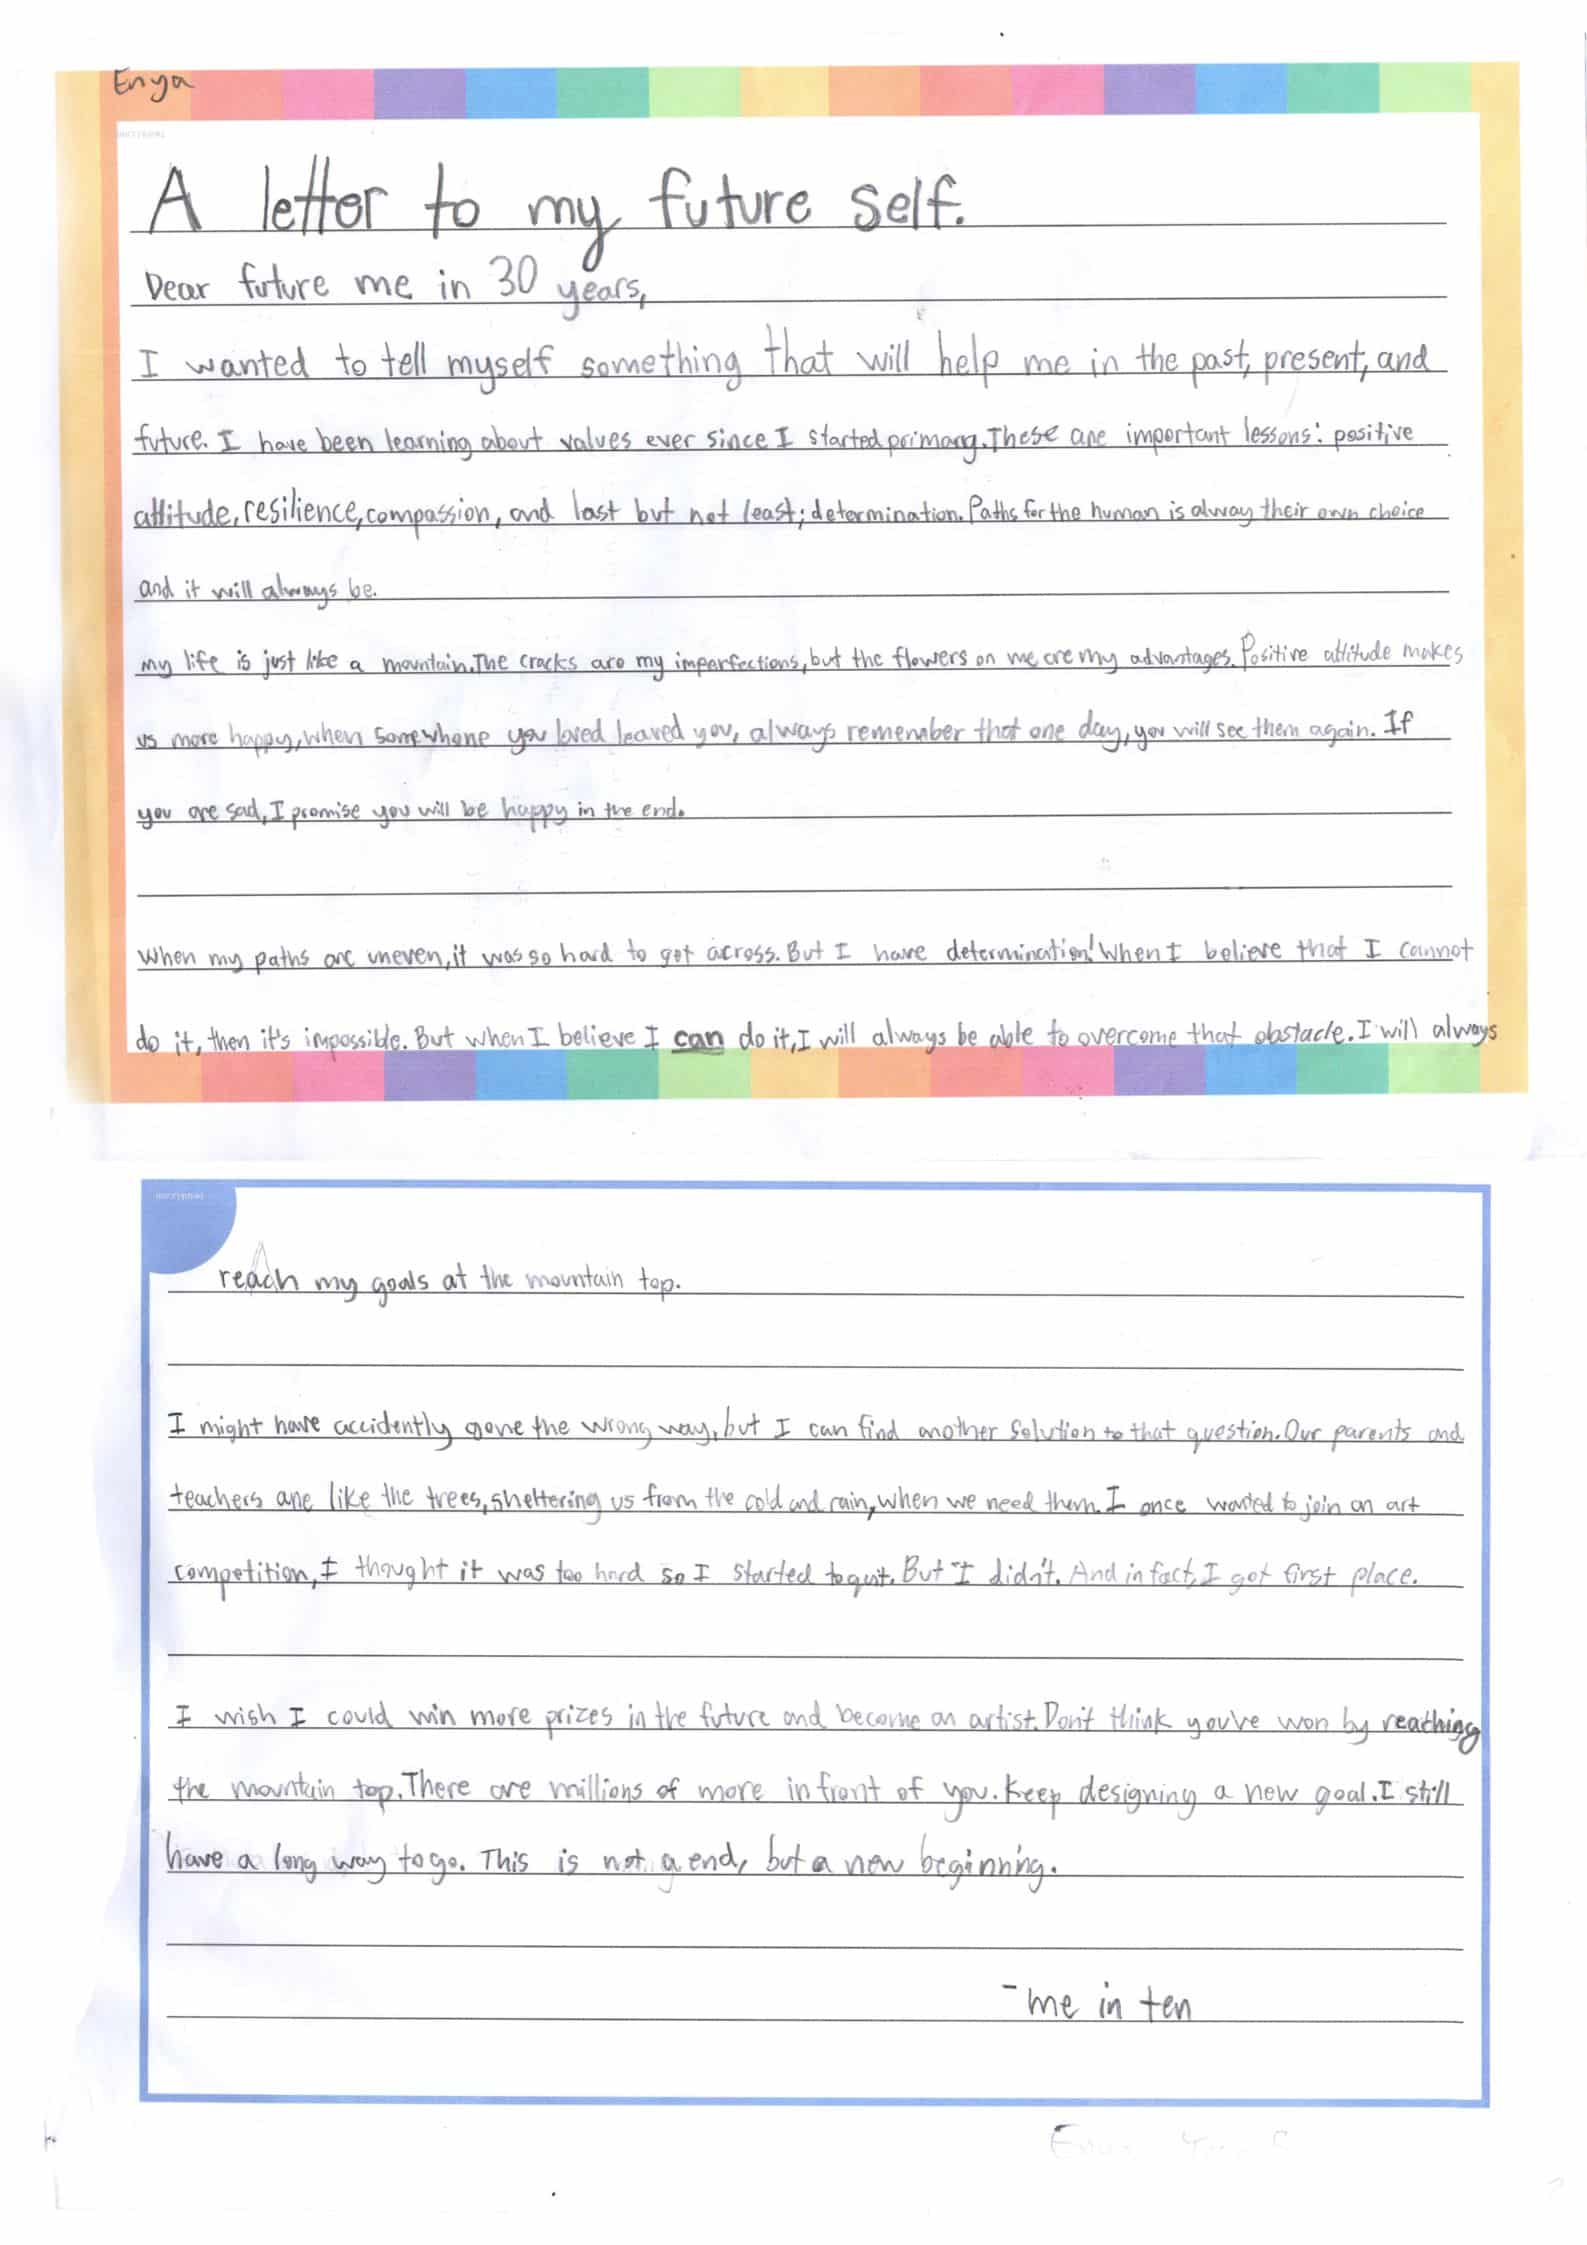 Enya
A letter to my future self.
Dear future me in 30 years,
I wanted to tell myself something that will help me in the past, present, and
future. I have been learning about values ever since I started primary. These are important lessons: positive
attitude, resilience, compassion, and last but not least; determination. Paths for the human is alway their own choice
and it will always be.
my life is just like a mountain. The cracks are my imperfections, but the flowers on me are my advantages. Positive attitude makes
us more happy, when somewhone you loved leaved you, always remember that one day, you will see them again. If
you are sad, I promise you will be happy in the end.
When my paths are uneven, it was so hard to get across. But I have determination! When I believe that I cannot
do it, then it's impossible. But when I believe I can do it, I will always be able to overcome that obstacle. I will always
reach my goals at the mountain top.
I might have accidently gone the wrong way, but I can find another solution to that question. Our parents and
teachers are like the trees, sheltering us from the cold and rain, when we need them. I once wanted to join an art
competition, I thought it was too hard so I started to quit. But I didn't. And in fact, I got first place.
I wish I could win more prizes in the future and become an artist. Don't think you've won by reaching
the mountain top. There are millions of more in front of you. Keep designing a new goal. I still
have a long way to go. This is not a end, but a new beginning.
-me in ten